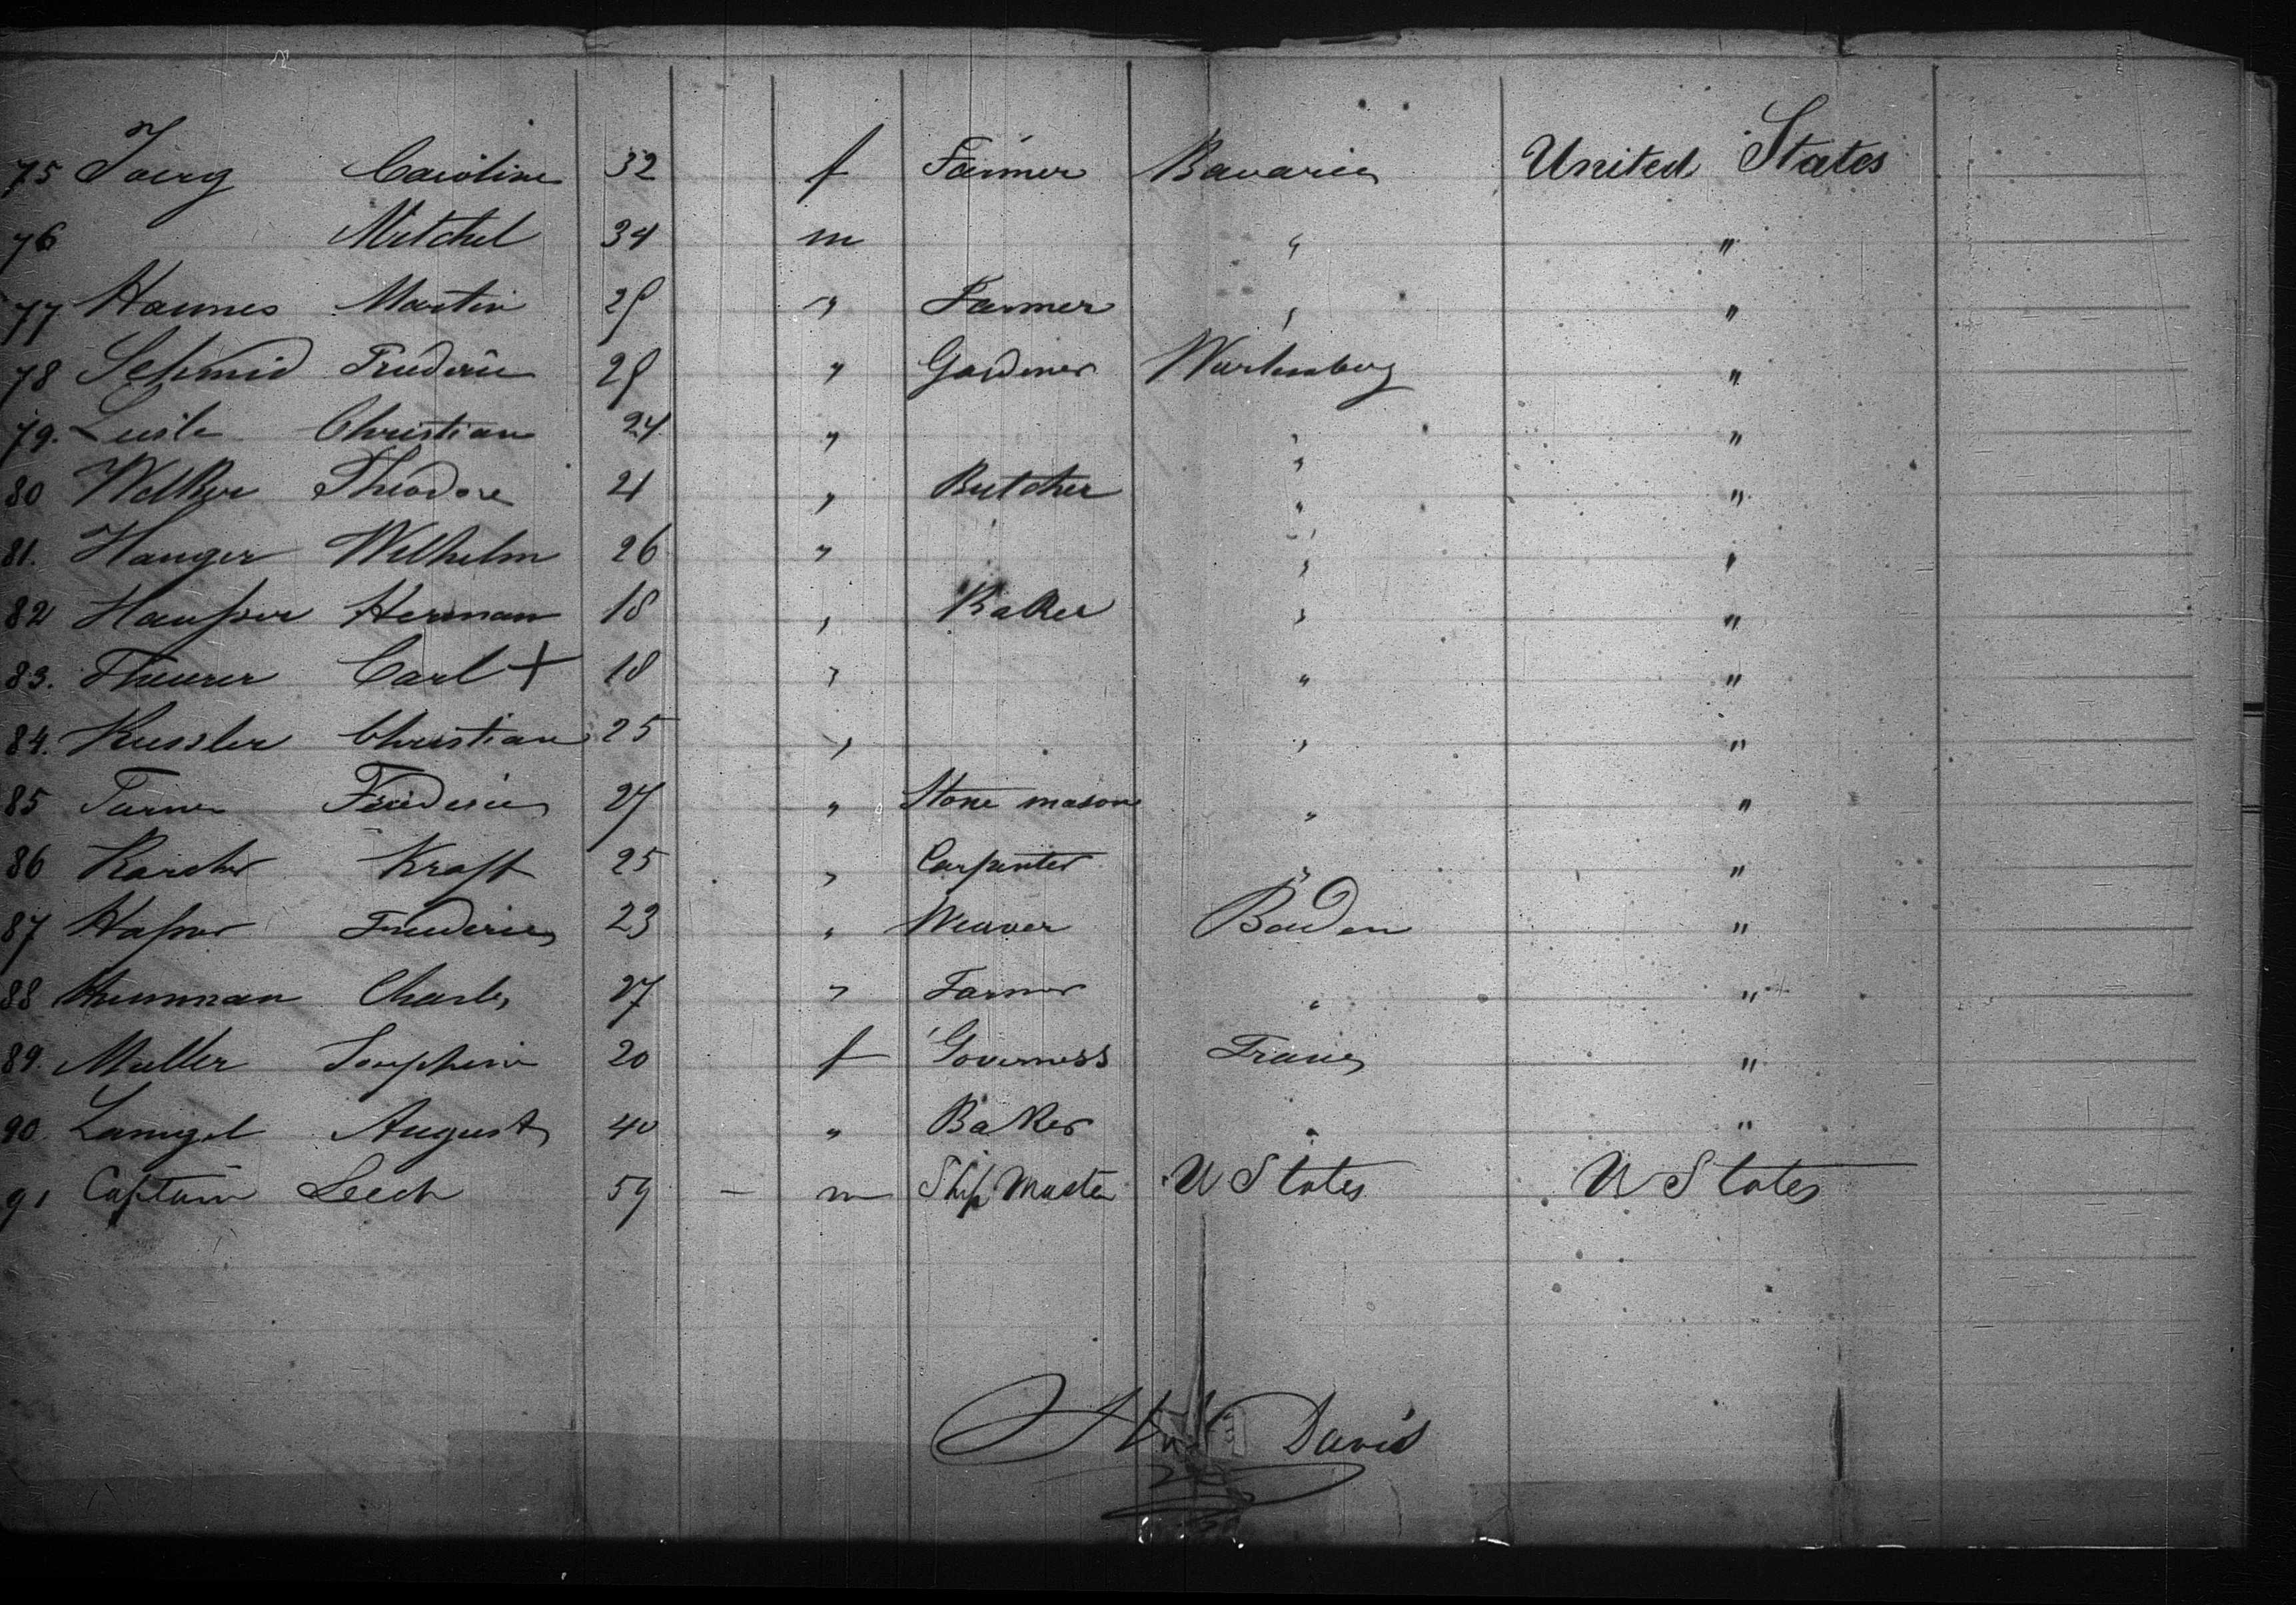 75 Joerg Caroline 32 f Farmer Bavaria United States
76 Mitchel 34 m " "
77 Hannes Martin 29 " Farmer " "
78 Schmid Frederic 29 " Gardener Wurtemberg "
79. Christian 24 " " "
80 Welker Theodore 21 " Butcher " "
81. Hanger Wilhelm 26 " " "
82 Herman 18 " Baker " "
83. Theurer Carl + 18 " " "
84. Kussler Christian 25 " " "
85 Turner Frederic 27 " Stone mason " "
86 Karcher Kraft 25 " Carpenter " "
87 Frederic 23 " Weaver Baden "
88 Charles 27 " Farmer " "
89. Muller Josephine 20 f Governess France "
90. August 40 " Baker " "
91 Captain Leech 59 - m Ship Master U States U States
Davis